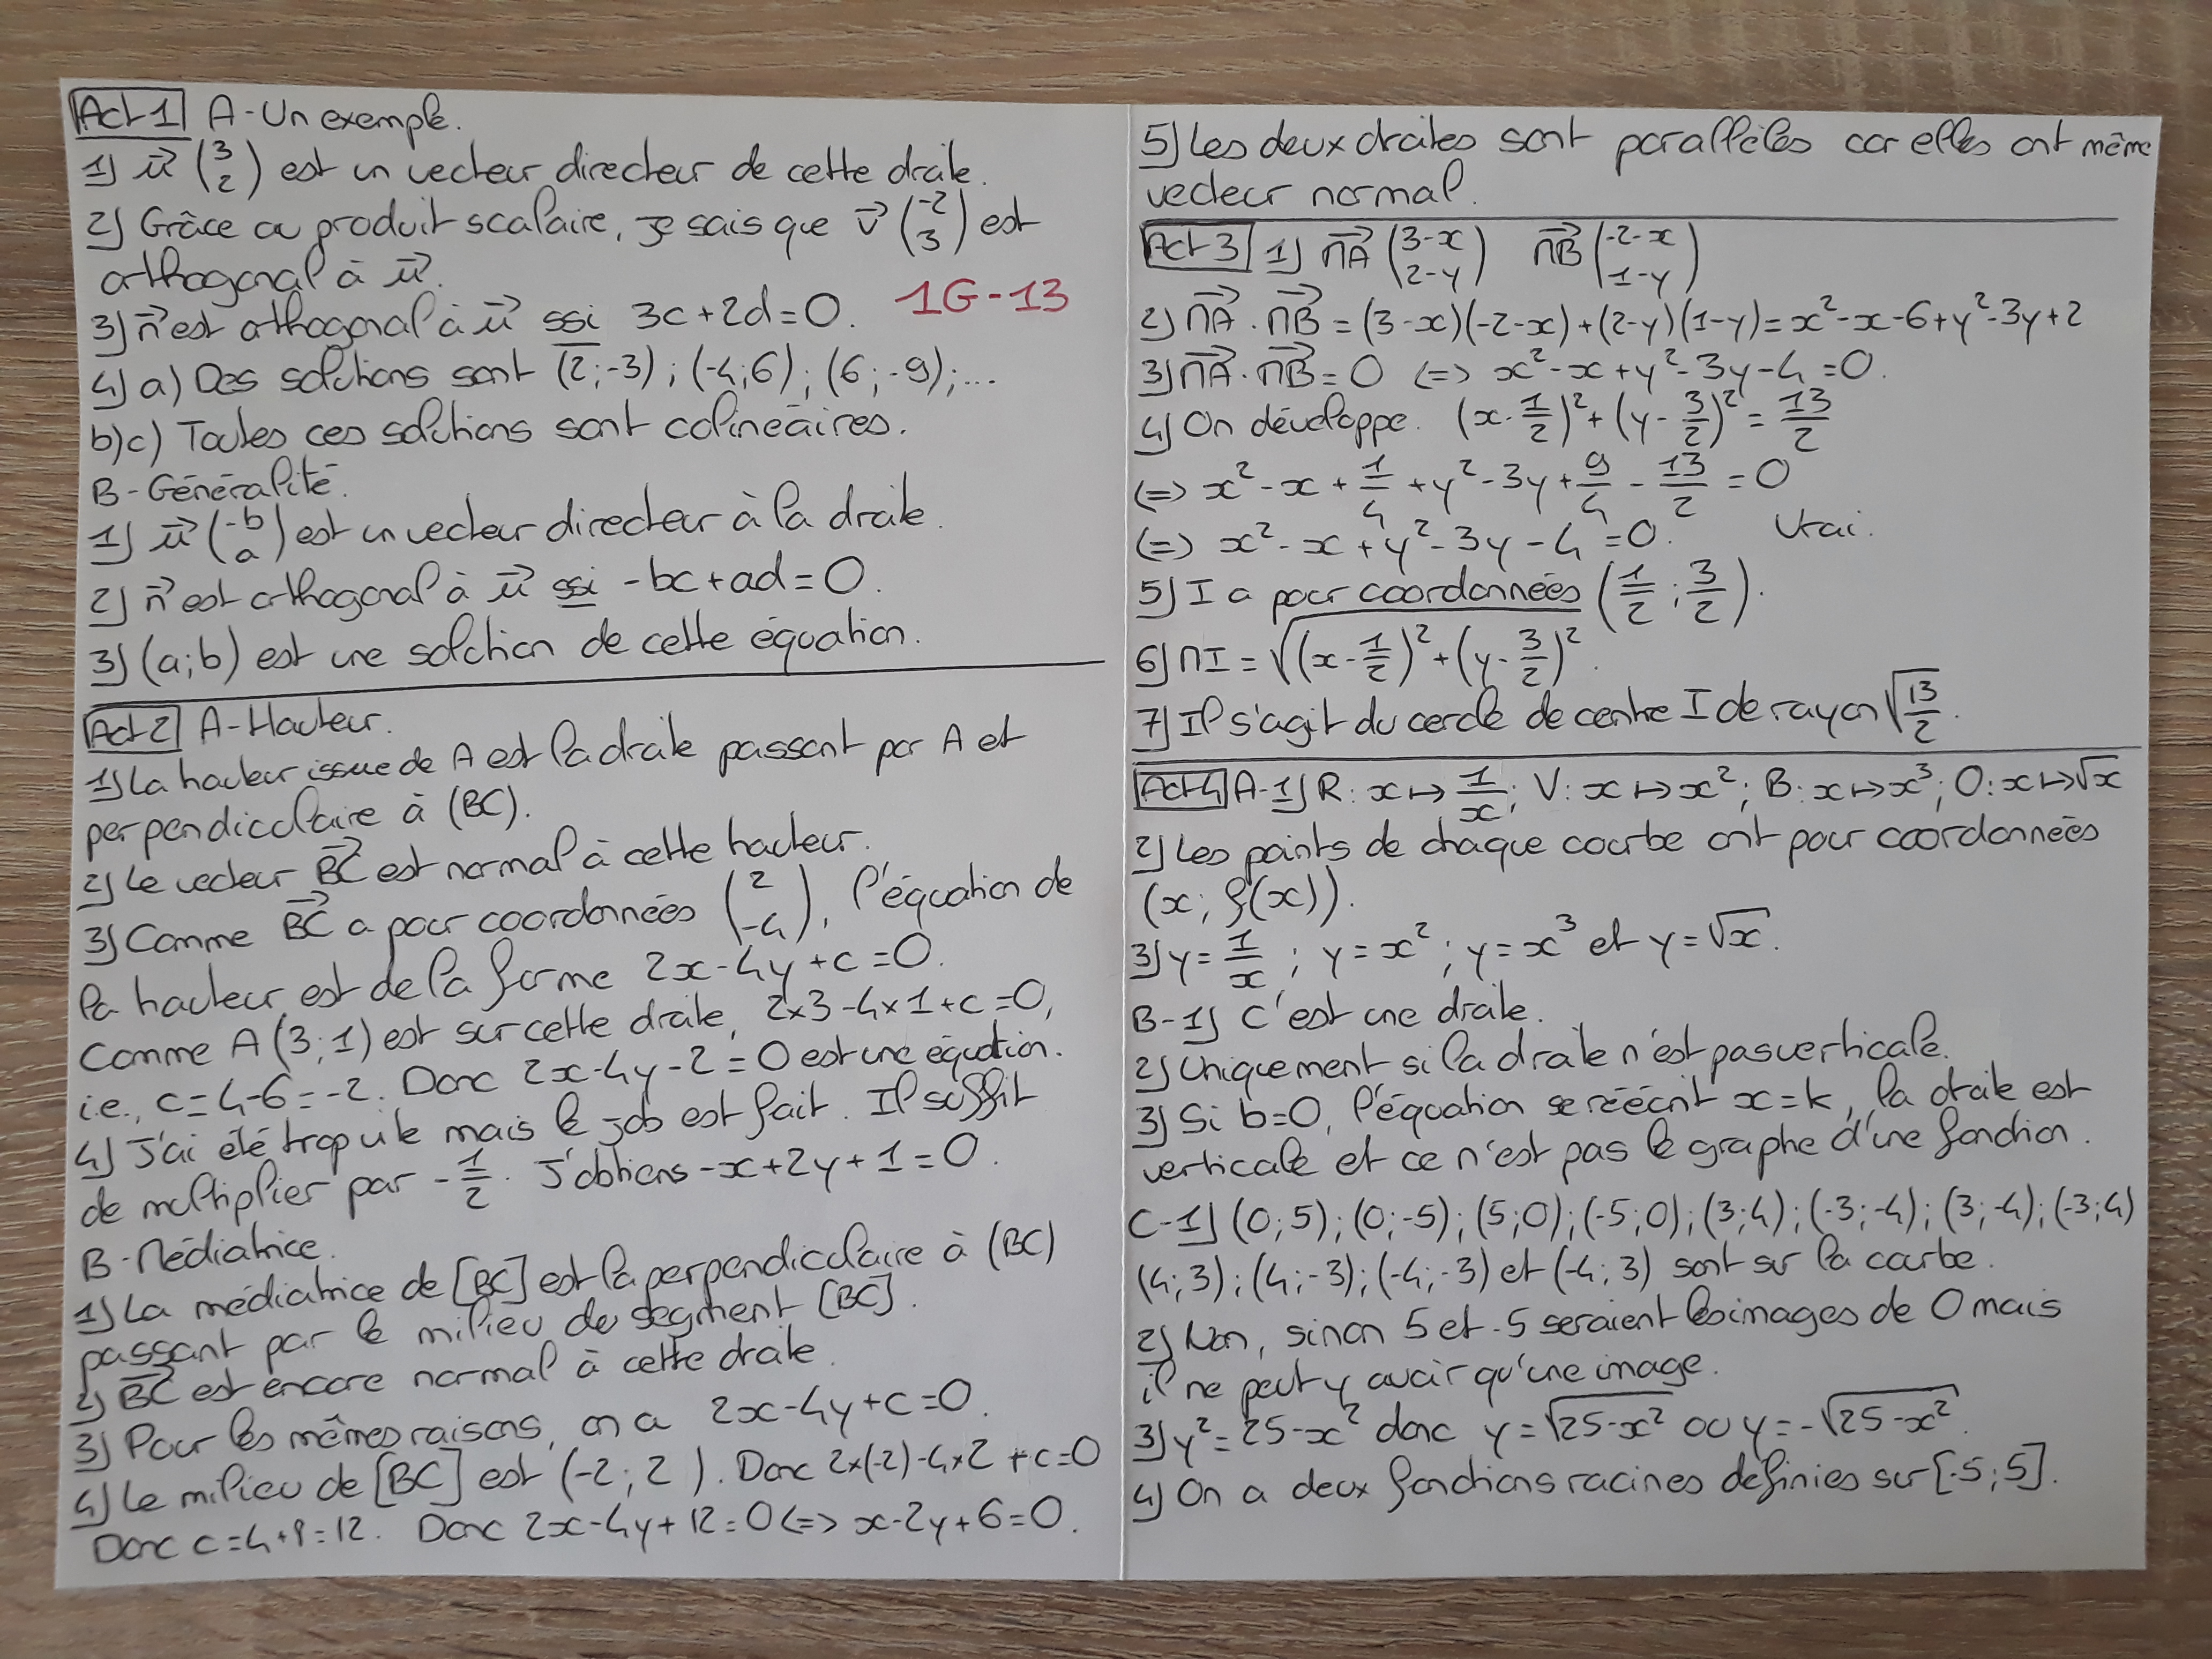 Act 1 A-Un exemple.
1) u⃗ (3 2) est un vecteur directeur de cette droite.
2) Grâce au produit scalaire, je sais que v⃗ (-2 3) est
orthogonal à u⃗.
3) n⃗ est orthogonal à u⃗ ssi 3c+2d=0. 1G-13
4) a) Des solutions sont (2;-3); (-4;6); (6;-9);...
b)c) Toutes ces solutions sont colinéaires.
B-Généralité.
1) u⃗ (-b a) est un vecteur directeur à la droite.
2) n⃗ est orthogonal à u⃗ ssi -bc+ad=0.
3) (a;b) est une solution de cette équation.
Act 2 A-Hauteur.
1) La hauteur issue de A est la droite passant par A et
perpendiculaire à (BC).
2) Le vecteur BC⃗ est normal à cette hauteur.
3) Comme BC⃗ a pour coordonnées (2 -4), l'équation de
la hauteur est de la forme 2x-4y+c=0.
Comme A(3;1) est sur cette droite, 2×3-4×1+c=0,
i.e., c=4-6=-2. Donc 2x-4y-2=0 est une équation.
4) J'ai été trop vite mais le job est fait. Il suffit
de multiplier par -1/2. J'obtiens -x+2y+1=0.
B-Médiatrice.
1) La médiatrice de [BC] est la perpendiculaire à (BC)
passant par le milieu du segment [BC].
2) BC⃗ est encore normal à cette droite.
3) Pour les mêmes raisons, on a 2x-4y+c=0.
4) Le milieu de [BC] est (-2;2). Donc 2×(-2)-4×2+c=0
Donc c=4+8=12. Donc 2x-4y+12=0 <=> x-2y+6=0.
5) Les deux droites sont parallèles car elles ont même
vecteur normal.
Act 3 1) MA⃗ (3-x 2-y) MB⃗ (-2-x 1-y)
2) MA⃗.MB⃗=(3-x)(-2-x)+(2-y)(1-y)=x²-x-6+y²-3y+2
3) MA⃗.MB⃗=0 <=> x²-x+y²-3y-4=0.
4) On développe. (x-1/2)²+(y-3/2)²=13/2
<=> x²-x+1/4+y²-3y+9/4-13/2=0
<=> x²-x+y²-3y-4=0. Vrai.
5) I a pour coordonnées (1/2;3/2).
6) MI=√((x-1/2)²+(y-3/2)²).
7) Il s'agit du cercle de centre I de rayon √(13/2).
Act 4 A-1) R: x↦1/x; V: x↦x²; B: x↦x³; O: x↦√x
2) Les points de chaque courbe ont pour coordonnées
(x;f(x)).
3) y=1/x; y=x²; y=x³ et y=√x.
B-1) C'est une droite.
2) Uniquement si la droite n'est pas verticale.
3) Si b=0, l'équation se réécrit x=k, la droite est
verticale et ce n'est pas le graphe d'une fonction.
C-1) (0;5);(0;-5);(5;0);(-5;0);(3;4);(-3;-4);(3;-4);(-3;4)
(4;3);(4;-3);(-4;-3) et (-4;3) sont sur la courbe.
2) Non, sinon 5 et -5 seraient les images de 0 mais
il ne peut y avoir qu'une image.
3) y²=25-x² donc y=√(25-x²) ou y=-√(25-x²).
4) On a deux fonctions racines définies sur [-5;5].